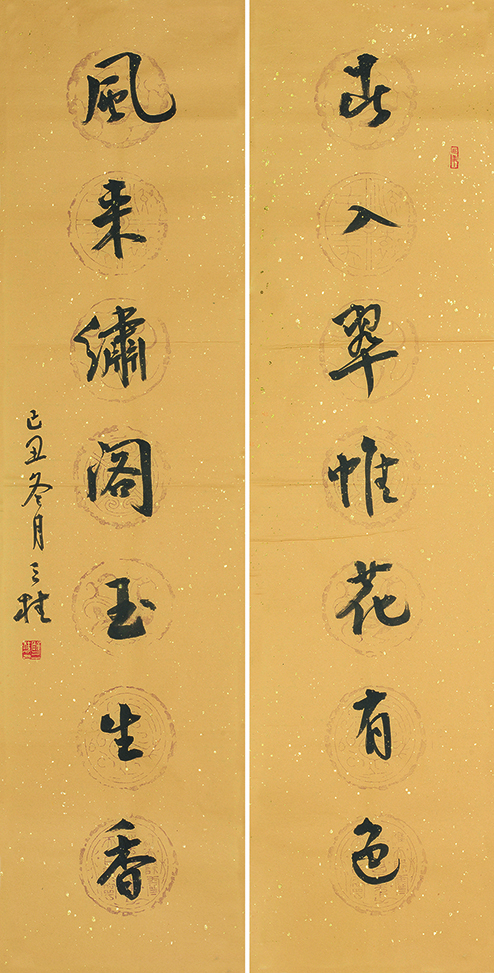 春入翠帷花有色
風来繡閣玉生香
己丑冬月